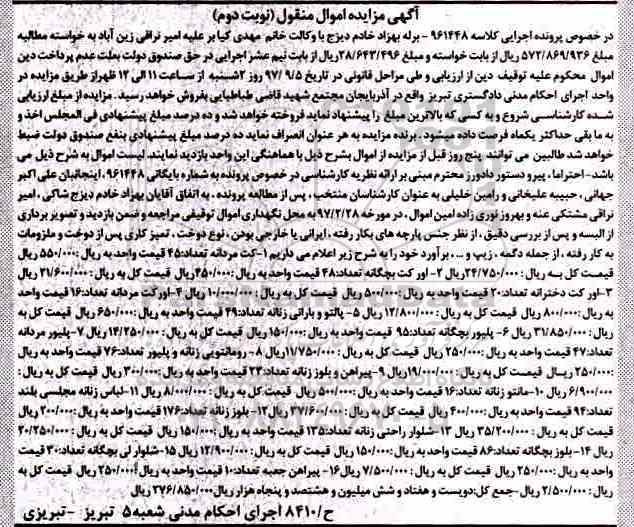 آگهی مزایده اموال منقول (نوبت دوم)
در خصوص پرونده اجرایی کلاسه ۹۶۱۴۴۸ - برله بهزاد خادم دیزج با وکالت خانم مهدی کیا بر علیه امیر نراقی زین آباد به خواسته مطالبه
مبلغ ۵۷۲/۸۶۹/۹۳۶ ریال از بابت خواسته و مبلغ ۲۸/۶۴۳/۴۹۶ ریال از بابت نیم عشر اجرایی در حق صندوق دولت بعلت عدم پرداخت دین
اموال محکوم علیه توقیف دین از ارزیابی و طی مراحل قانونی در تاریخ ۹۷/۹/۵ روز ۲شنبه از ساعت ۱۱ الی ۱۲ ظهر از طریق مزایده در
واحد اجرای احکام مدنی دادگستری تبریز واقع در آذربایجان مجتمع شهید قاضی طباطبایی بفروش خواهد رسید . مزایده از مبلغ ارزیابی
شده کارشناسی شروع و به کسی که بالاترین مبلغ را پیشنهاد نماید فروخته خواهد شد و ده درصد مبلغ پیشنهادی فی المجلس اخذ و
به ما بقی حداکثر یکماه فرصت داده میشود . برنده مزایده به هر عنوان انصراف نماید ده درصد مبلغ پیشنهادی بنفع صندوق دولت ضبط
خواهد شد طالبین می توانند پنج روز قبل از مزایده از اموال بشرح ذیل با هماهنگی این واحد بازدید نمایند. لیست اموال به شرح ذیل می
باشد- احتراما ، پیرو دستور دادورز محترم مبنی بر ارائه نظریه کارشناسی در خصوص پرونده به شماره بایگانی ۹۶۱۴۴۸، اینجانبان علی اکبر
جهانی ، حبیبه علیخانی و رامین خلیلی به عنوان کارشناسان منتخب ، پس از مطالعه پرونده ، به اتفاق آقایان بهزاد خادم دیزج شاکی ، امیر
نراقی مشتکی عنه و بهروز نوری زاده امین اموال ، در مورخه ۹۷/۲/۲۸ به محل نگهداری اموال توقیفی مراجعه و ضمن بازدید و تصویر برداری
از البسه و پس از بررسی دقیق ، از نظر جنس پارچه های بکار رفته ، ایرانی یا خارجی بودن ، نوع دوخت ، تمیز کاری پس از دوخت و ملزومات
به کار رفته ، از جمله دگمه ، زیپ و ... ، برآورد خود را به شرح زیر اعلام می داریم ۱-کت مردانه تعداد:۴۵ قیمت واحد به ریال :۵۵۰/۰۰۰ ریال
قیمت کل به ریال :۲۴/۷۵۰/۰۰۰ ریال ۲- اور کت بچگانه تعداد:۴۸ قیمت واحد به ریال :۴۵۰/۰۰۰ریال قیمت کل به ریال :۲۱/۶۰۰/۰۰۰ ریال
۳-اور کت دخترانه تعداد:۲۰ قیمت واحد به ریال :۵۰۰/۰۰۰ ریال قیمت کل به ریال :۱۰/۰۰۰/۰۰۰ ریال ۴-اور کت مردانه تعداد:۱۶ قیمت واحد
به ریال :۸۰۰/۰۰۰ ریال قیمت کل به ریال :۱۲/۸۰۰/۰۰۰ ریال ۵- پالتو و بارانی زنانه تعداد:۴۹ قیمت واحد به ریال :۶۵۰/۰۰۰ ریال قیمت کل به
ریال :۳۱/۸۵۰/۰۰۰ ریال ۶- پلیور بچگانه تعداد:۹۵ قیمت واحد به ریال :۱۵۰/۰۰۰ ریال قیمت کل به ریال :۱۴/۲۵۰/۰۰۰ ریال ۷-پلیور مردانه
تعداد:۴۷ قیمت واحد به ریال :۲۵۰/۰۰۰ ریال قیمت کل به ریال :۱۱/۷۵۰/۰۰۰ ریال ۸- رومانتویی زنانه و پلیور تعداد:۷۶ قیمت واحد به ریال
:۲۵۰/۰۰۰ ریال قیمت کل به ریال :۱۹/۰۰۰/۰۰۰ ریال ۹-پیراهن و بلوز زنانه تعداد:۲۳ قیمت واحد به ریال :۳۰۰/۰۰۰ ریال قیمت کل به ریال :
۶/۹۰۰/۰۰۰ ریال ۱۰-مانتو زنانه تعداد:۱۶ قیمت واحد به ریال :۵۰۰/۰۰۰ ریال قیمت کل به ریال :۸/۰۰۰/۰۰۰ ریال ۱۱-لباس زنانه مجلسی بلند
تعداد:۹۴ قیمت واحد به ریال :۴۰۰/۰۰۰ ریال قیمت کل به ریال :۳۷/۶۰۰/۰۰۰ ریال ۱۲- بلوز زنانه تعداد:۱۷۶ قیمت واحد به ریال :۲۰۰/۰۰۰ ریال
قیمت کل به ریال :۳۵/۲۰۰/۰۰۰ ریال ۱۳-شلوار راحتی زنانه تعداد:۱۳۵ قیمت واحد به ریال :۱۵۰/۰۰۰ ریال قیمت کل به ریال :۲۰/۲۵۰/۰۰۰
ریال ۱۴- بلوز بچگانه تعداد:۸۶ قیمت واحد به ریال :۱۵۰/۰۰۰ ریال قیمت کل به ریال :۱۲/۹۰۰/۰۰۰ ریال ۱۵-شلوار لی بچگانه تعداد:۳۰ قیمت
واحد به ریال :۲۵۰/۰۰۰ ریال قیمت کل به ریال :۷/۵۰۰/۰۰۰ ریال ۱۶- پیراهن جعبه تعداد:۱۰ قیمت واحد به ریال :۲۵۰/۰۰۰ ریال قیمت کل به
ریال :۲/۵۰۰/۰۰۰ ریال -جمع کل:دویست و هفتاد و شش میلیون و هشتصد و پنجاه هزار ریال۲۷۶/۸۵۰/۰۰۰ ریال
ح/۸۴۱۰ اجرای احکام مدنی شعبه۵ تبریز -تبریزی